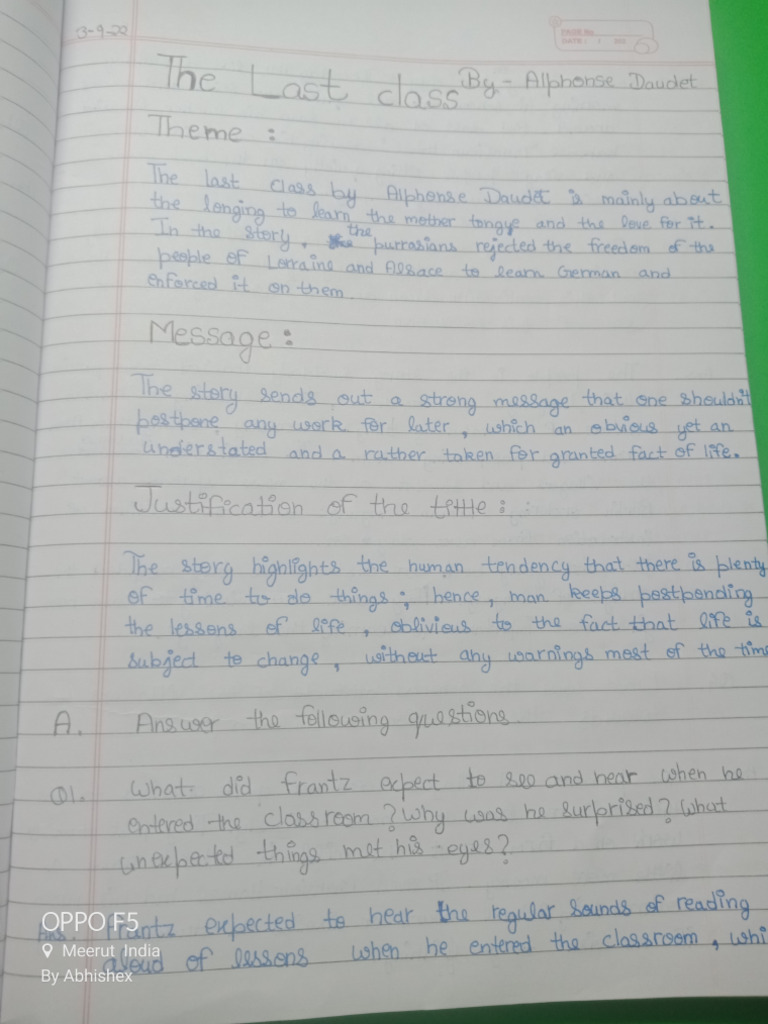 3-9-22
PAGE No.
DATE: / / 202
The Last class By - Alphonse Daudet
Theme :
The last class by Alphonse Daudet is mainly about
the longing to learn the mother tongue and the love for it.
In the story, the purrasians rejected the freedom of the
people of Lorraine and Alsace to learn German and
enforced it on them
Message :
The story sends out a strong message that one shouldn't
postpone any work for later, which an obvious yet an
understated and a rather taken for granted fact of life.
Justification of the tittle :
The story highlights the human tendency that there is plenty
of time to do things ; hence, man keeps postponding
the lessons of life, oblivious to the fact that life is
subject to change, without any warnings most of the time
A. Answer the following questions
Q1. What did frantz expect to see and hear when he
entered the classroom ? Why was he surprised ? What
unexpected things met his eyes ?
Ans. Frantz expected to hear the regular sounds of reading
aloud of lessons when he entered the classroom, whi
OPPO F5
Meerut India
By Abhishex